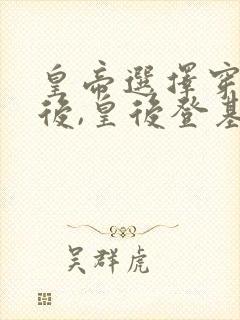 皇帝選擇穿
後,皇後登基
吳群虎